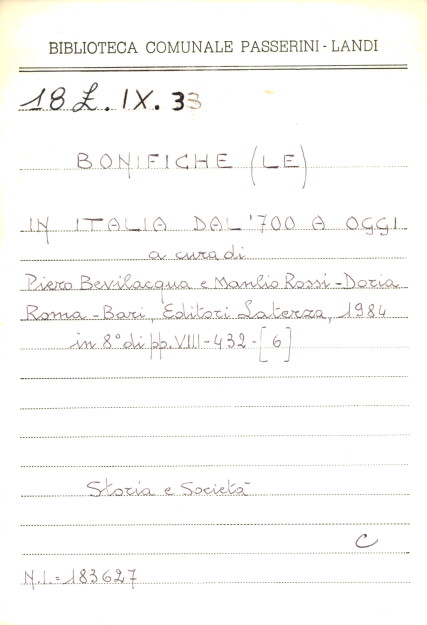 BIBLIOTECA COMUNALE PASSERINI-LANDI
18 L. IX. 33
BONIFICHE (LE)
IN ITALIA DAL '700 A OGGI
a cura di
Piero Bevilacqua e Manlio Rossi-Doria
Roma-Bari, Editori Laterza, 1984
in 8° di pp. VIII-432-[6]
Storia e Società
C
N.I.= 183627